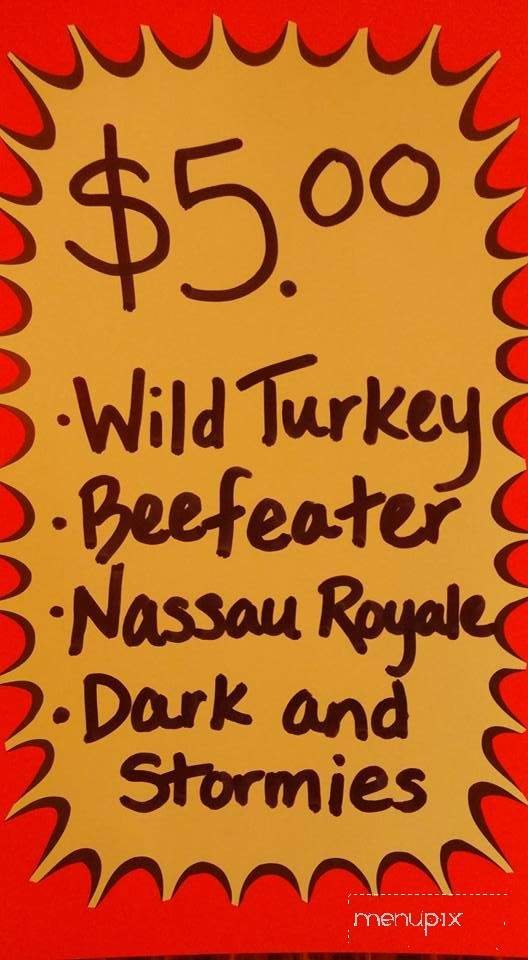 $5.00
·Wild Turkey
·Beefeater
·Nassau Royale
·Dark and
Stormies
menupix